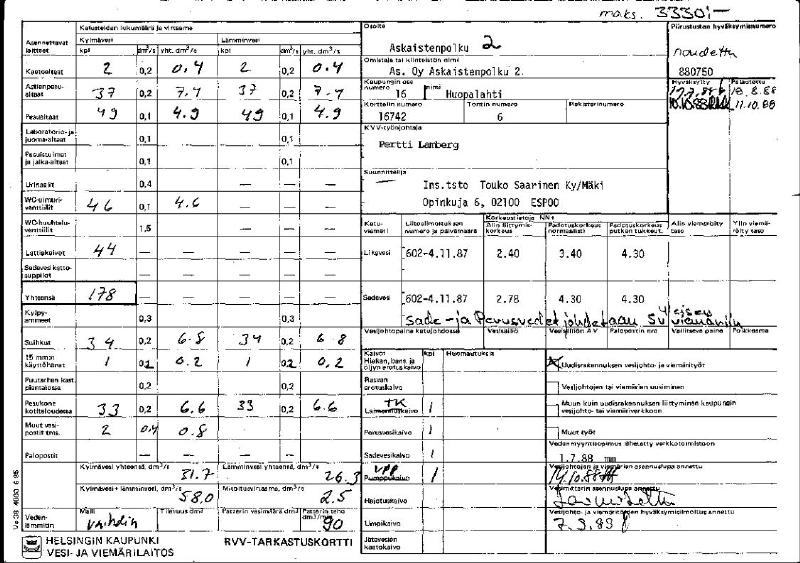 maks. 3330:-
Katusteiden lukumäärä ja virtaama
Asennettavat laitteet
Kylmävesi
kpl
dm³/s
yht. dm³/s
Lämminvesi
kpl
dm³/s
yht. dm³/s
Keetoaltaat 2 0,2 0.4 2 0,2 0.4
Astianpesualtaat 37 0,2 7.4 37 0,2 7.4
Pesualtaat 49 0,1 4.9 49 0,1 4.9
Laboratorio- ja juoma-altaat 0,1 0,1
Pesuistuimet ja jalka-altaat 0,1 0,1
Urinaalit 0,4 — — — —
WC-uimuriventtiilit 46 0,1 4.6 — — —
WC-huuhteluventtiilit 1,5 — — —
Lattiakaivot 44 — — — — —
Sadevesi kattosuppilot — — — — —
Yhteensä 178 — — — — —
Kylpyammeet 0,3 0,3
Suihkut 34 0,2 6.8 34 0,2 6.8
15 mm:n käyttöhanat 1 0,2 0.2 1 0,2 0,2
Puutarhan kast. pientalossa 0,2 0,2
Pesukone kotitaloudessa 33 0,2 6.6 33 0,2 6.6
Muut vesipostit tms. 2 0,4 0.8
Palopostit — — —
Kylmävesi yhteensä, dm³/s 31.7
Lämminvesi yhteensä, dm³/s 26.3
Kylmävesi + lämminvesi, dm³/s 580
Mitoitusvirtaama, dm³/s 2.5
Vedenlämmitin
Malli
Tilavuus dm³
Patterin vesimäärä dm³
Patterin teho dm³/min 90
HELSINGIN KAUPUNKI
VESI- JA VIEMÄRILAITOS
RVV-TARKASTUSKORTTI
Osoite
Askaistenpolku 2
Omistaja tai kiinteistön nimi
As. Oy Askaistenpolku 2.
Kaupunginosa numero 16 nimi Huopalahti
Korttelin numero 16742
Tontin numero 6
Rekisterinumero
KVV-työnjohtaja
Pertti Lamberg
Suunnittelija
Ins.tsto Touko Saarinen Ky/Mäki
Opinkuja 6, 02100 ESPOO
Piirustuston hyväksymisnumero
noudettu
880750
Hyväksytty
Palautettu
18.8.88
11.10.88
Katuviemäri
Liitoslausunnon numero ja päivämäärä
Korkeustietoja NN+
Alin liittymiskorkeus
Padotuskorkeus normaalisti
Padotuskorkeus putken tukkeut.
Alin viemäröity taso
Ylin viemäröity taso
Likavesi 602-4.11.87 2.40 3.40 4.30
Sadevesi 602-4.11.87 2.78 4.30 4.30
sade- ja Perusvedet johdetaan SV viemäriin
Vesijohtopaine katujohdossa
Vesisäiliö
Vesisäiliön AV
Palopostin nro
Vallitseva paine
Poikkeama
Kaivot
kpl
Huomautuksia
Hiekan, bens. ja öljyn erotuskaivo
Rasvan erotuskaivo
TK 1
Perusvesikaivo 1
Sadevesikaivo 1
VPP
Pumppukaivo 1
Hajotuskaivo
Umpikaivo
Jätevesien kastokaivo
Uudisrakennuksen vesijohto- ja viemärityöt
Vesijohtojen tai viemärien uusiminen
Muun kuin uudisrakennuksen liittyminen kaupungin vesijohto- tai viemäriverkkoon
Muut työt
Vedenmyyntisopimus lähetetty verkkotoimistoon
1.7.88
Vesijohtojen ja viemärien asennuslupa annettu
14.10.88
Vesimittarin asennuslupa annettu
Vesijohto- ja viemäröiden hyväksymisilmoitus annettu
7.3.89